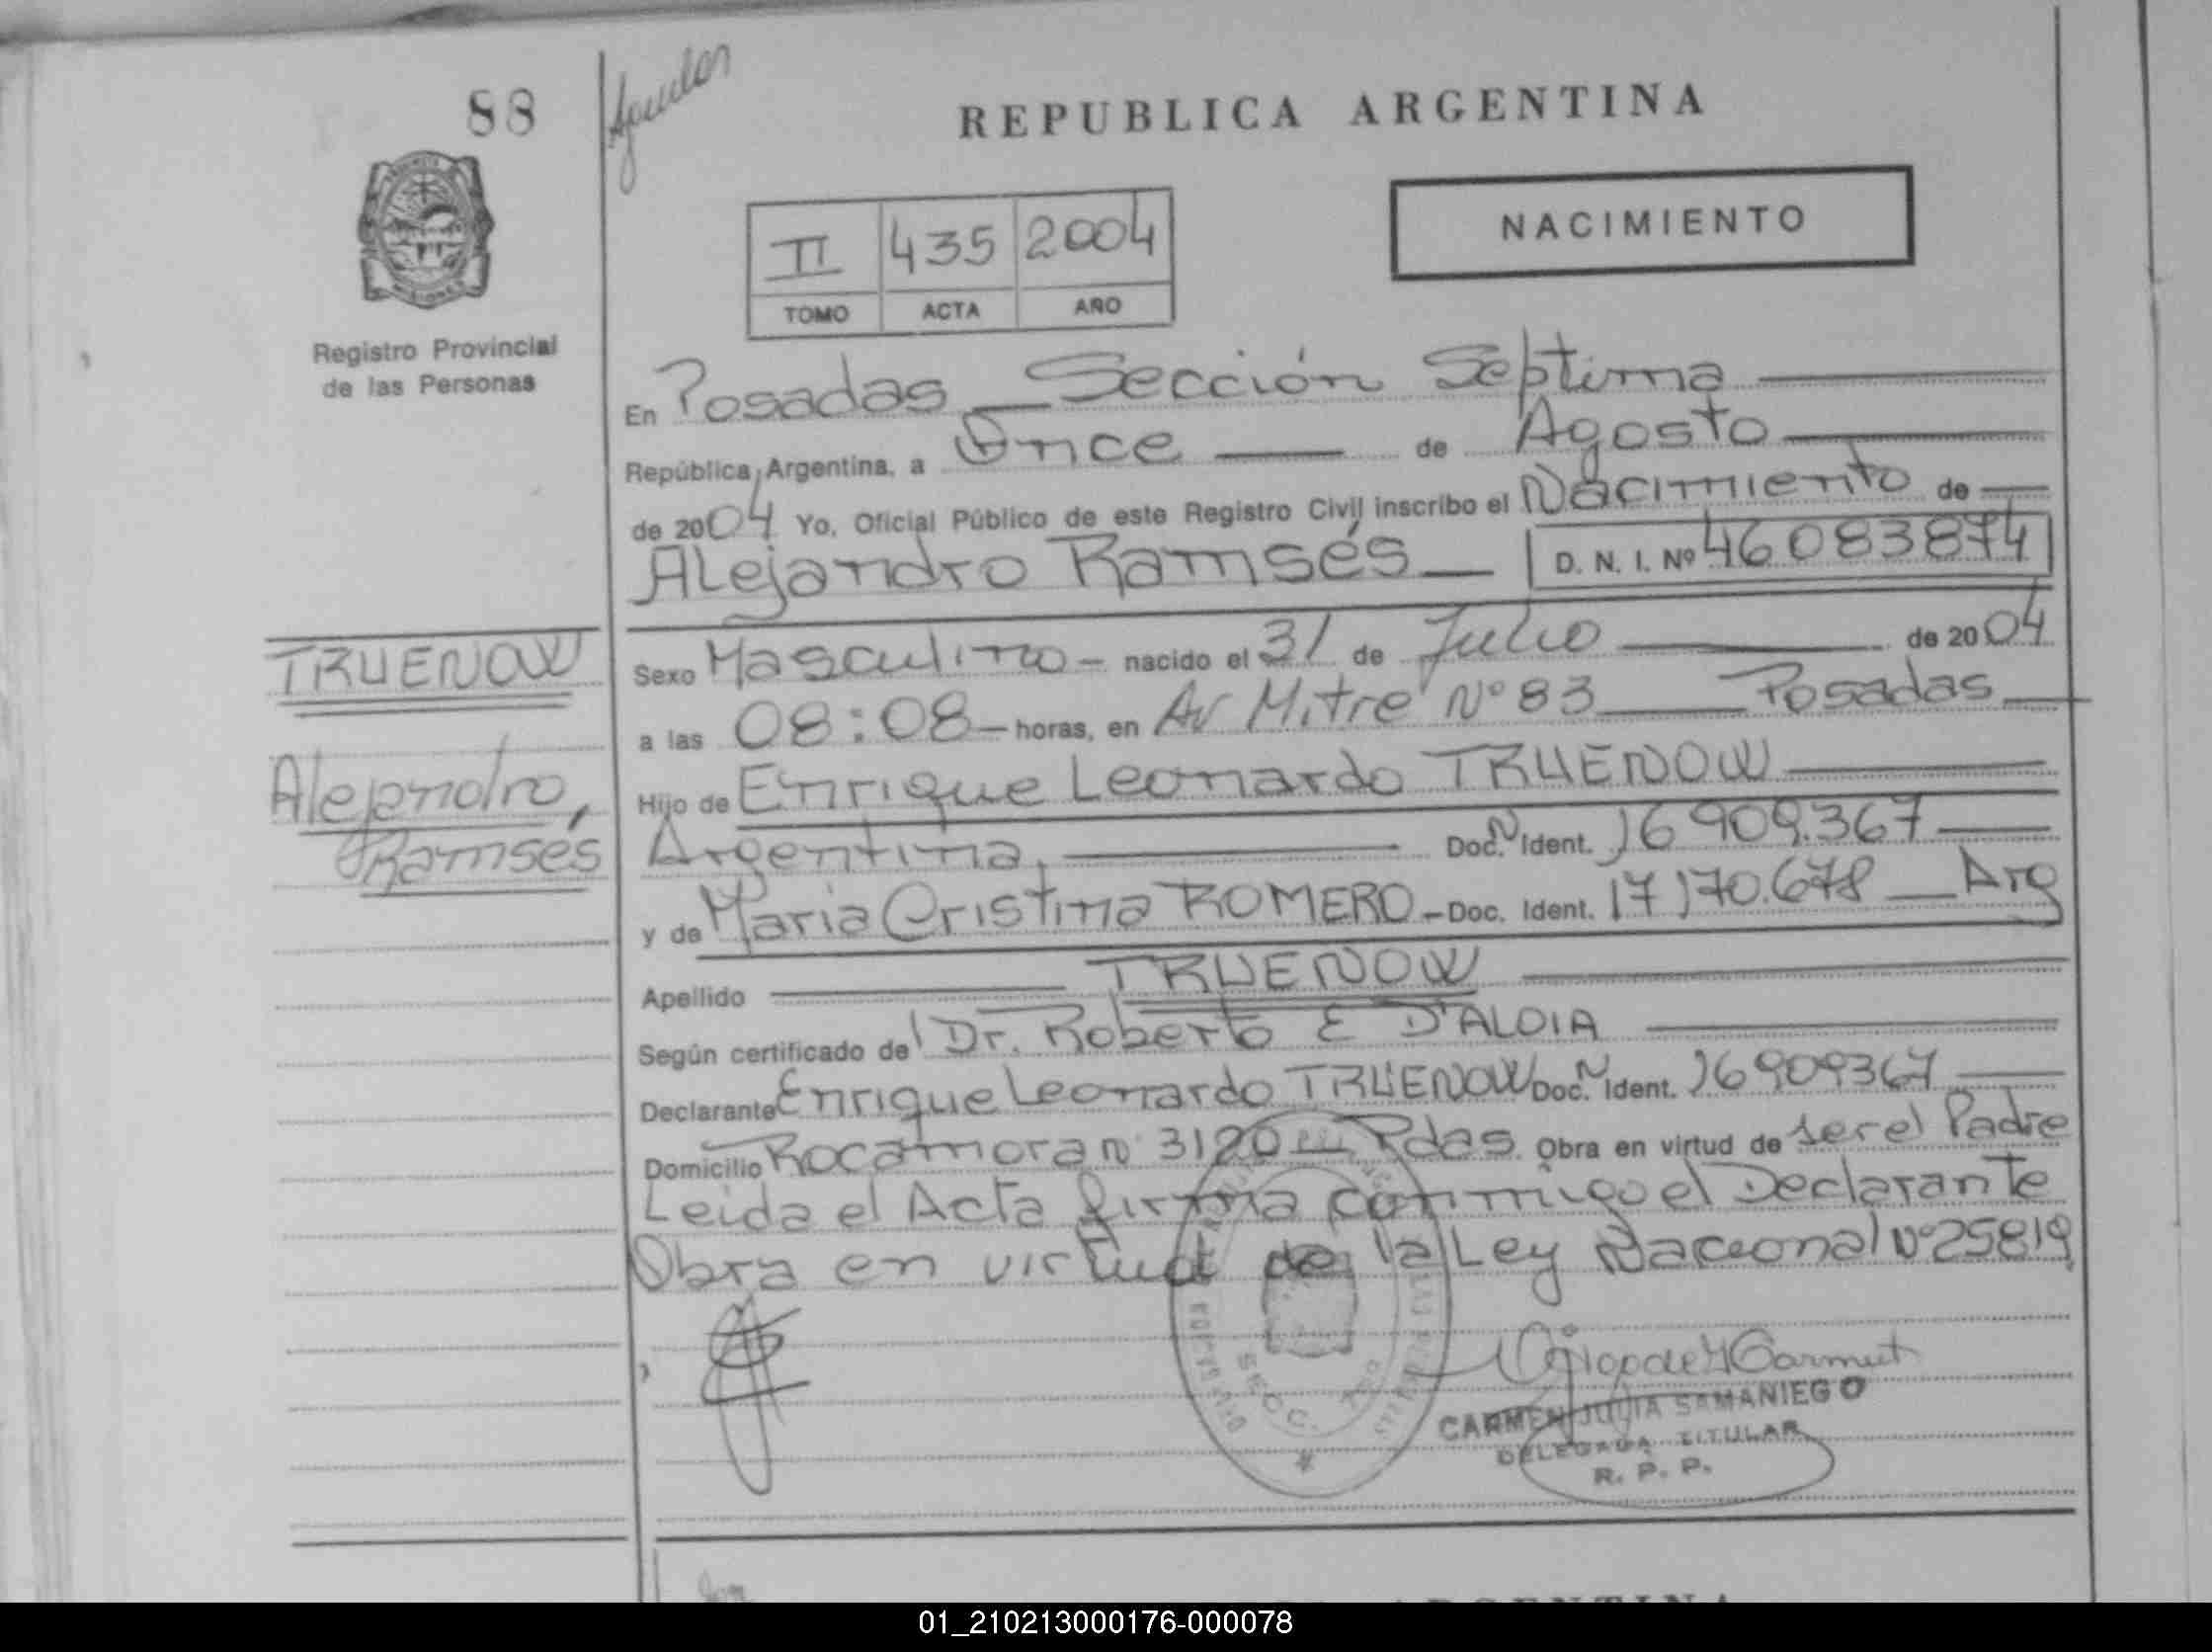 88
Aguilar
REPUBLICA ARGENTINA
II 435 2004
TOMO ACTA AÑO
NACIMIENTO
Registro Provincial
de las Personas
En Posadas Sección Septima
República Argentina, a Once de Agosto
de 2004 Yo, Oficial Público de este Registro Civil inscribo el Nacimiento de
Alejandro Ramsés D. N. I. Nº 46083874
TRUENOW
Alejandro,
Ramsés
Sexo Masculino nacido el 31 de Julio de 2004
a las 08:08 horas, en Av Mitre Nº 83 Posadas
Hijo de Enrique Leonardo TRUENOW
Argentina, Doc. N Ident. 16 909.367
y de Maria Cristina ROMERO Doc. Ident. 17170.678 Arg
Apellido TRUENOW
Según certificado del Dr. Roberto E D'ALOIA
Declarante Enrique Leonardo TRUENOW Doc. N Ident. 16909367
Domicilio Rocamora N 3120 Pdas. Obra en virtud de ser el Padre
Leida el Acta firma conmigo el Declarante
Obra en virtud de la Ley Nacional Nº 25819
SECC. 7
CARMEN JULIA SAMANIEGO
DELEGADA TITULAR
R. P. P.
ARGENTINA
01_210213000176-000078